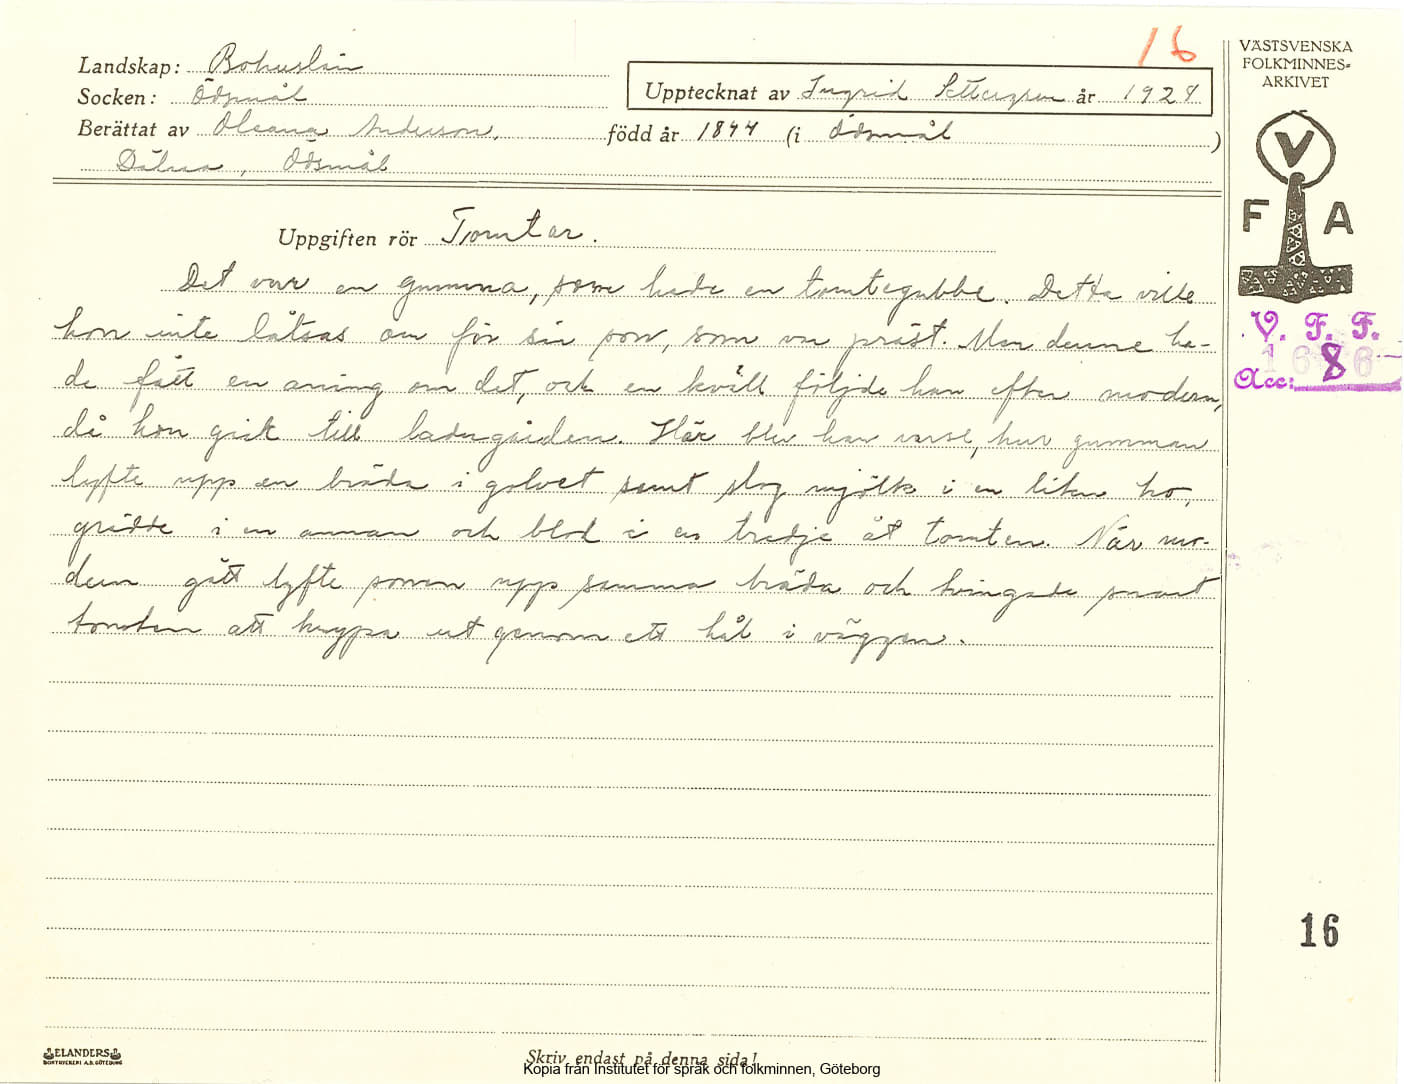 16
VÄSTSVENSKA
FOLKMINNES-
ARKIVET
Landskap: Bohuslän
Socken: Ödsmål
Upptecknat av Ingrid Settergren år 1924
Berättat av Oleana Anderson, född år 1844 (i Ödsmål)
Ödsmål
V
F A
Uppgiften rör Tomtar.
Det var en gumma, som hade en tomtegubbe. Detta ville
hon inte låtsas om för sin son, som var präst. Men denne ha-
de fått en aning om det, och en kväll följde han efter modern,
då hon gick till ladugården. Här blev han varse, hur gumman
lyfte upp en bräda i golvet samt slog mjölk i en liten ho,
grädde i en annan och blod i en tredje åt tomten. När mo-
dern gått lyfte sonen upp samma bräda och tvingade snart
tomten att krypa ut genom ett hål i väggen.
V. F. F.
Acc:
16
ELANDERS
BOKTRYCKERI A.B. GÖTEBORG
Skriv endast på denna sida!
Kopia från Institutet för språk och folkminnen, Göteborg